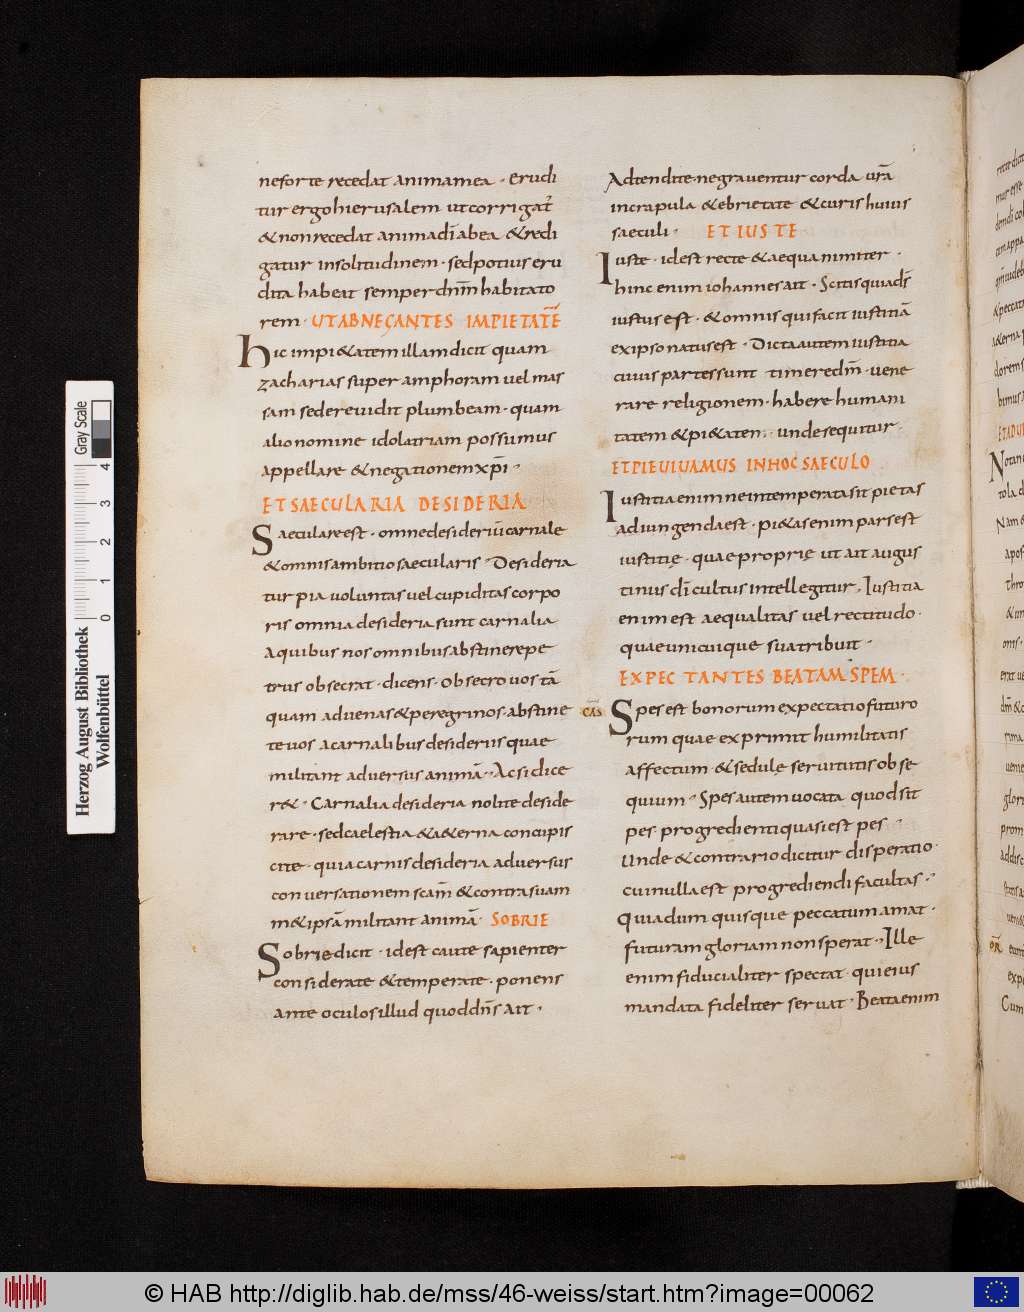 neforte recedat animamea · erudi
tur ergohierusalem utcorrigat᷑
&nonrecedat animadī abea &redi
gatur insolitudinem · sedpotius eru
dita habeat semperdnm̄habitato
rem · UTABNEGANTES IMPIETATĒ
Hic impi&atem illamdicit quam
zacharias super amphoram uel mas
sam sedereuidit plumbeam · quam
alionomine idolatriam possumus
appellare &negationemxp̄i ·
ET SAECULARIA DESIDERIA
Saeculareest · omnedesideriū carnale
&omnisambitiosaecularis · Desideria
tur pia uoluntas uel cupiditas corpo
ris omnia desideria sunt carnalia
Aquibus nos omnibusabstinerepe
trus obsecrat · dicens · obsecrouos tā
quam aduenas&peregrinos abstine
teuos acarnalibusdesideriis quae
militant aduersus animā · Acsidice
r& · Carnalia desideria nolite deside
rare · sedcaelestia &a&erna concupis
cite · quia carnis desideria aduersus
conuersationem scām &contrasuam
m&ipsā militant animā · SOBRIE
Sobriedicit · idest caute sapienter
considerate &temperate · ponens
ante oculosillud quoddn̄s ait ·
Adtendite negrauentur corda urā
incrapula &ebrietate &curis huius
saeculi · ET IUSTE
Iuste · idest recte &aequanimiter ·
hinc enim iohannesait · Scitisquiadš
iustus est · &omnis quifacit iustitiā
exipso natusest · Dictaautem iustitia
cuius partessunt timeredm̄ · uene
rare religionem · habere humani
tatem &pi&atem · undesequitur ·
ETPIEUIUAMUS INHOC SAECULO
Iustitia enim neintemperatasit pietas
adiungendaest · pi&asenim parsest
iustitię · quaeproprię ut ait augus
tinus dī cultus intellegitur, Iustitia
enim est aequalitas uel rectitudo ·
quaeunicuique suatribuit ·
EXPECTANTES BEATAM SPEM ·
CAS Spes est bonorum expectatiofuturo
rum quae exprimit humilitatis
affectum &sedulę seruitutisobse
quium · Spesautem uocata quodsit
pes progredientiquasiest pes ·
Unde &contrariodicitur disperatio
cuinullaest progrediendi facultas ·
Quiadum quisque peccatum amat ·
futuram gloriam nonsperat · Ille
enim fiducialiter spectat quieius
mandata fideliter seruat · Beataenim
Herzog August Bibliothek
Wolfenbüttel
0 1 2 3 4
Gray Scale
© HAB http://diglib.hab.de/mss/46-weiss/start.htm?image=00062